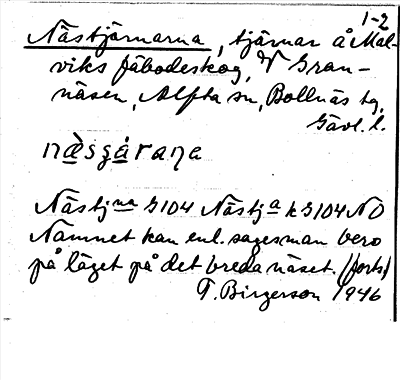 1-2
Nästjärnarna, tjärnar å Mal-
viks fäbodeskog, V Gran-
näsen, Alfta sn, Bollnäs tg,
Gävl. l.
Nästj na G104 Nästj a k G104 NO
Namnet kan enl. sagesman bero
på läget på det breda näset. (forts)
T. Birgerson 1946